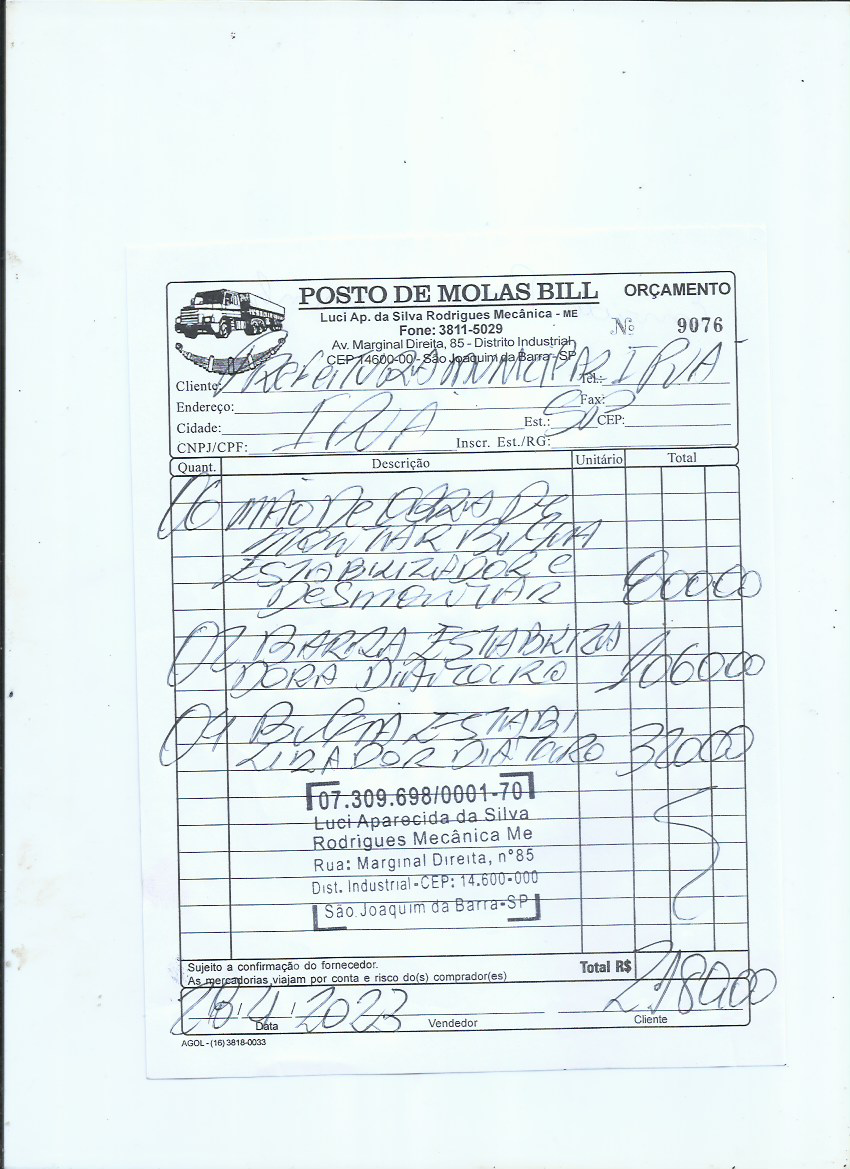 POSTO DE MOLAS BILL
ORÇAMENTO
Luci Ap. da Silva Rodrigues Mecânica - ME
Fone: 3811-5029
Nº 9076
Av. Marginal Direita, 85 - Distrito Industrial
CEP 14600-00 - São Joaquim da Barra - SP
Cliente: PREFEITURA MUNICIPAL IPUA Tel.:
Endereço: Fax:
Cidade: IPUA Est.: SP CEP:
CNPJ/CPF: Inscr. Est./RG:
Quant. Descrição Unitário Total
06 MÃO DE OBRA DE
MONTAR BUCHA
ESTABILIZADOR E
DESMONTAR 80000
02 BARRA ESTABILIZA
DORA DIANTEIRO 106000
04 BUCHA ESTABI
LIZADOR DIANTEIRO 32000
07.309.698/0001-70
Luci Aparecida da Silva
Rodrigues Mecânica Me
Rua: Marginal Direita, n°85
Dist. Industrial-CEP: 14.600-000
São Joaquim da Barra-SP
Sujeito a confirmação do fornecedor.
As mercadorias viajam por conta e risco do(s) comprador(es)
Total R$ 218000
4 2023
Data Vendedor Cliente
AGOL - (16) 3818-0033